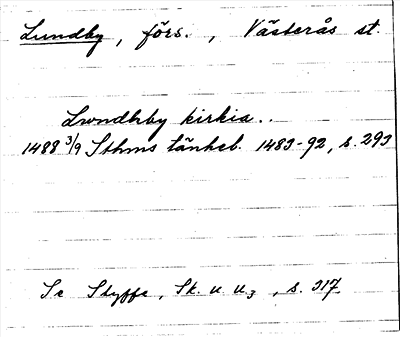 Lundby, förs., Västerås st.
Lwndhby kirkia..
1488 3/9 Sthms tänkeb. 1483-92, s. 293
Se Styffe, Sk. u. U.3, s. 317